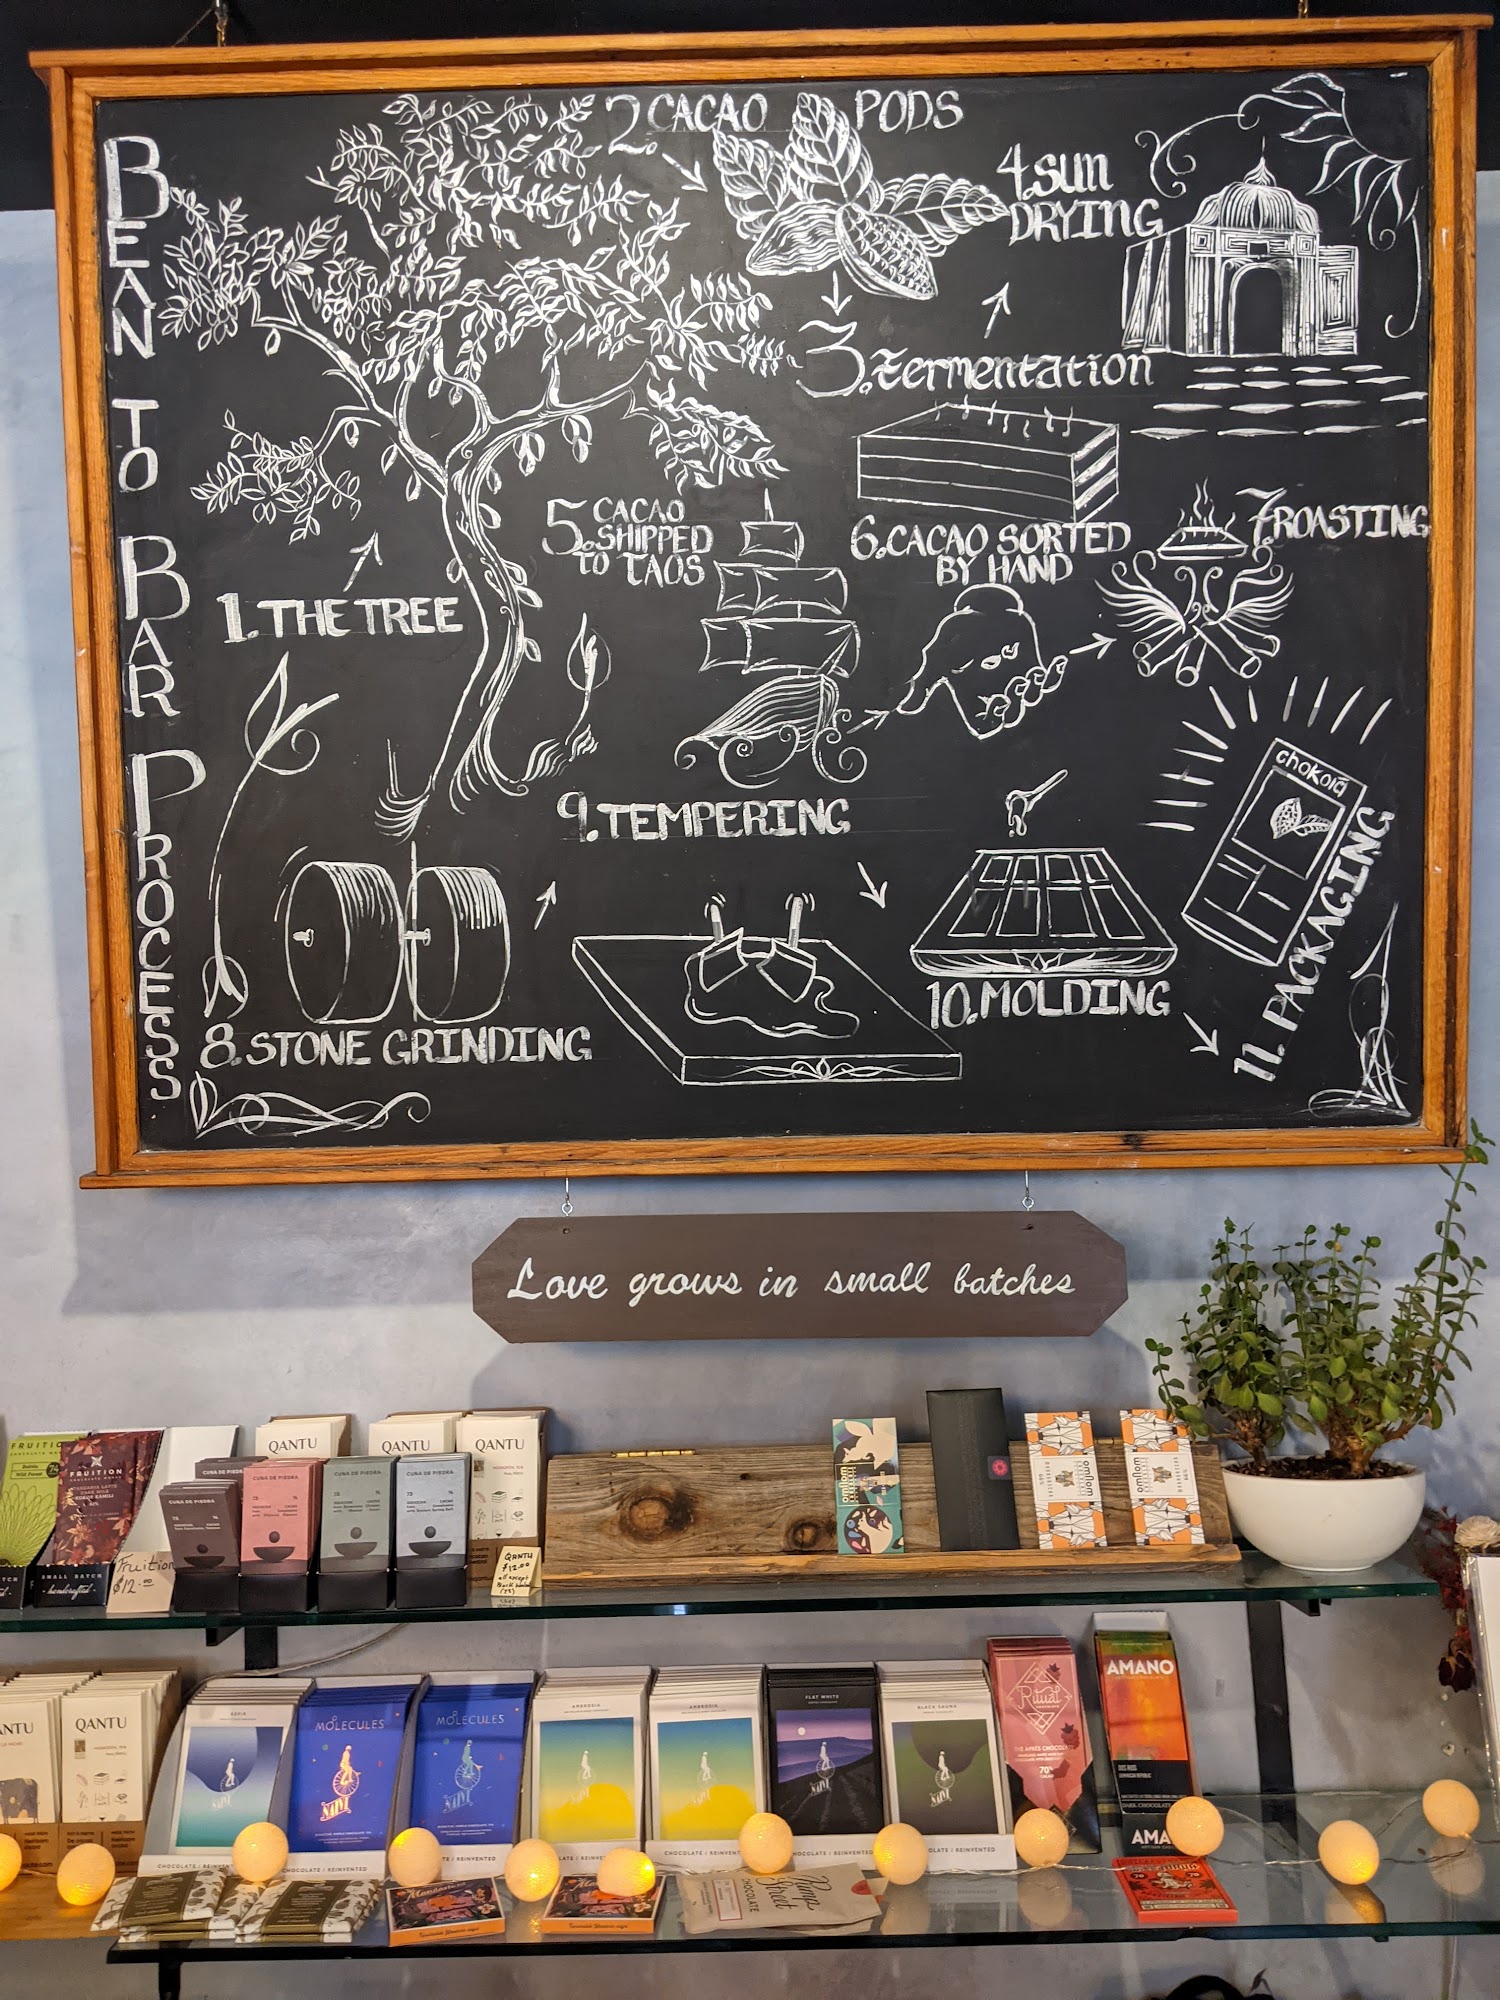 BEAN TO BAR PROCESS
1. THE TREE
2. CACAO PODS
3. Fermentation
4. SUN
DRYING
5. CACAO
SHIPPED
TO TAOS
6. CACAO SORTED
BY HAND
7. ROASTING
8. STONE GRINDING
9. TEMPERING
10. MOLDING
chokolá
11. PACKAGING
Love grows in small batches
FRUITION
FRUITION
SMALL BATCH
handcrafted
Fruition
$12.00
CUNA DE PIEDRA
CUNA DE PIEDRA
CUNA DE PIEDRA
CUNA DE PIEDRA
CUNA DE PIEDRA
73 %
CACAO
QANTU
QANTU
QANTU
QANTU
$12.00
all except
omnom
omnom
omnom
QANTU
QANTU
MOLECULES
NAÏVE
MOLECULES
NAÏVE
AMBROSIA
AMBROSIA
FLAT WHITE
NAÏVE
BLACK SAUNA
CHOCOLATE / REINVENTED
CHOCOLATE / REINVENTED
CHOCOLATE / REINVENTED
CHOCOLATE / REINVENTED
Ritual
CHOCOLATE
70%
AMANO
DOS RIOS
DARK CHOCOLATE
AMA
Pump
Street
CHOCOLATE